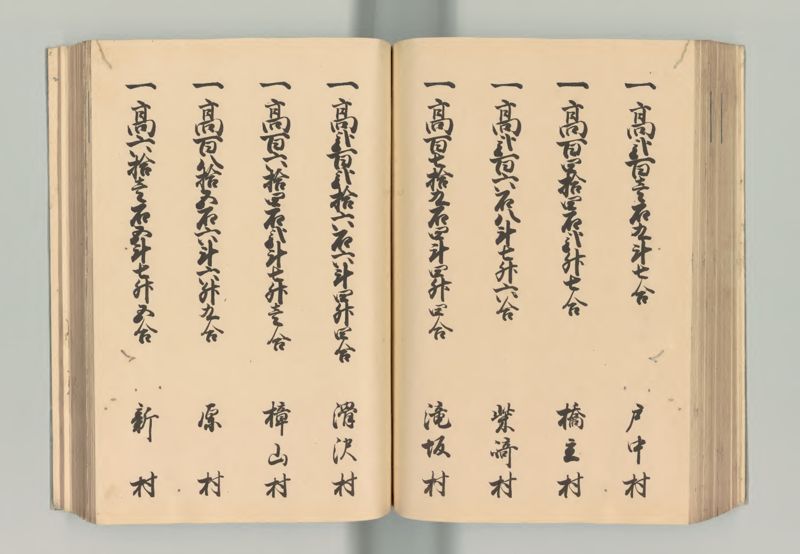 一高弐百壱石九斗七合 戸中村
一高百四拾四石弐升七合 橋立村
一高弐百六石八斗七升六合 柴崎村
一高百七拾九石四斗四升四合 滝坂村
一高弐百弐拾六石六斗四升四合 滑沢村
一高百六拾四石弐斗七升壱合 樟山村
一高百八拾五石六斗六升九合 原村
一高六拾壱石五斗七升五合 新村